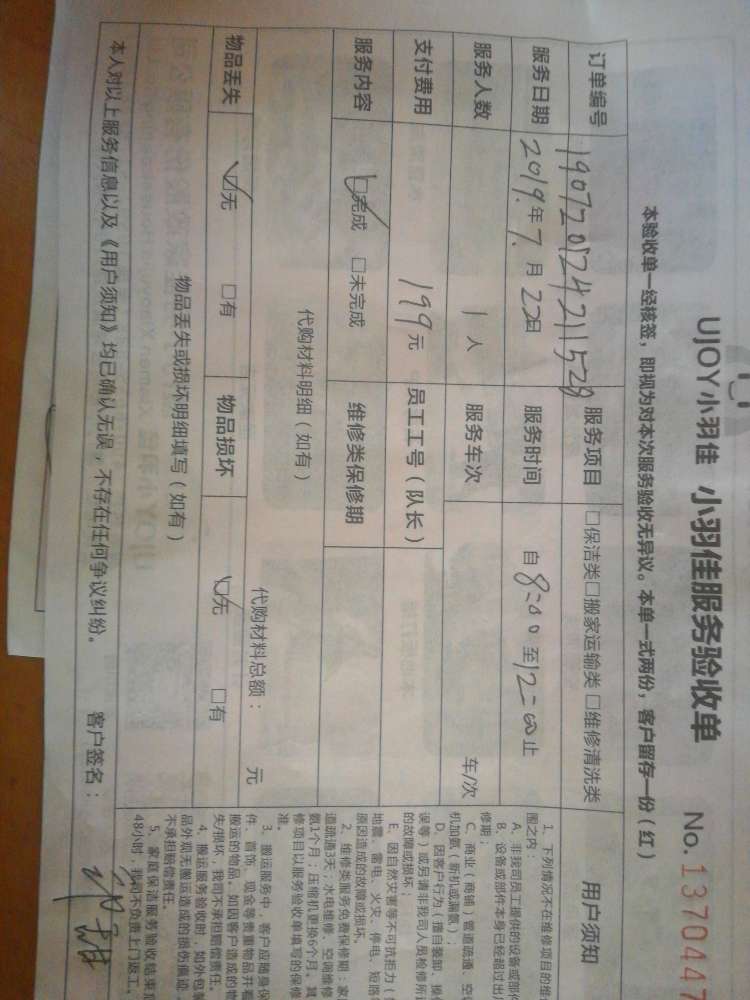 UJOY小羽佳 小羽佳服务验收单 No. 1370447
本验收单一经核签，即视为对本次服务验收无异议。本单一式两份，客户留存一份（红）
订单编号 19072052421152 服务项目 □保洁类□搬家运输类 □维修清洗类
服务日期 2019年7月22日 服务时间 自8:00至12:00止
服务人数 1人 服务车次 车/次
支付费用 199元 员工工号（队长）
服务内容 ☑完成 □未完成 维修类保修期
代购材料明细（如有） 代购材料总额： 元
物品丢失 ☑无 □有 物品损坏 ☑无 □有
物品丢失或损坏明细填写（如有）
本人对以上服务信息以及《用户须知》均已确认无误，不存在任何争议纠纷。 客户签名：
用户须知
1、下列情况不在维修项目的维
围之内
A、非我司员工提供的设备或部件
B、设备或部件本身已经超过出厂
修期；
C、商业（商铺）管道疏通、空
机加氟（新机或漏氟）；
D、因客户行为（擅自装卸、操
误等）或另请非我司人员检修所
的故障或损坏；
E、因自然灾害等不可抗拒力（
地震、雷电、火灾、停电、短路
原因造成的故障或损坏。
2、维修类服务免费保修期：家
道疏通3天；水电维修、空调维修
氟1个月；压缩机更换6个月，其
修项目以服务验收单填写的保修
准。
3、搬运服务中，客户应随身保
件、首饰、现金等贵重物品并看
搬运的物品。如因客户造成的物
失/损坏，我司不承担赔偿责任。
4、搬运服务验收时，如外包装
品外观无搬运造成的损伤痕迹
不承担赔偿责任。
5、家庭保洁服务验收结束后
48小时，我司不负责上门返工。